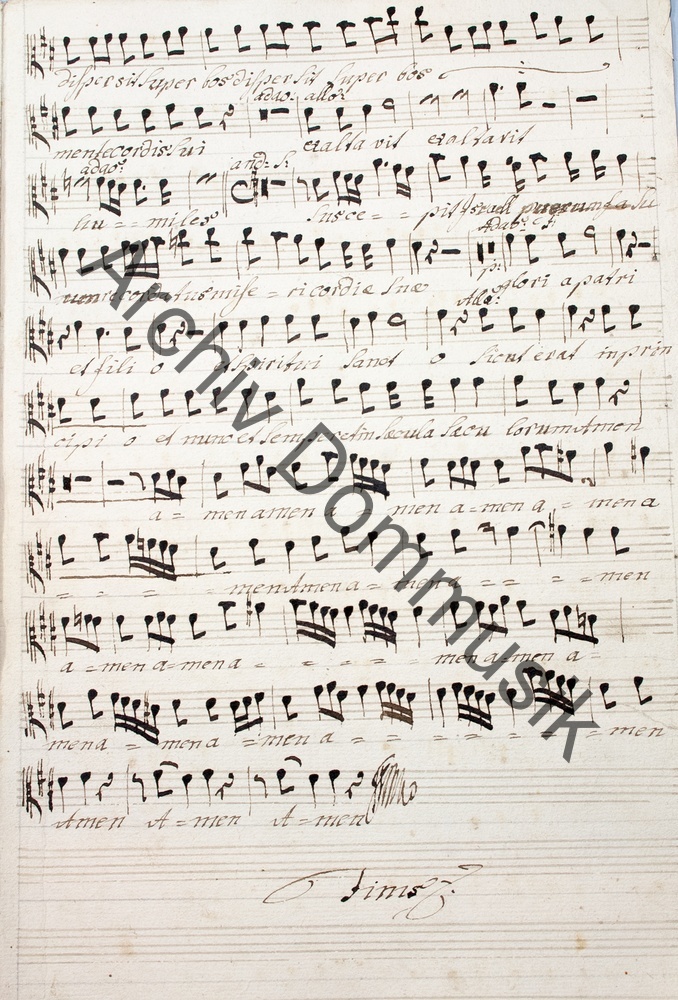 dispersit super bos dispersit super bos
adag: allo:
mente cordis sui exaltavit exaltavit
adag: and: S:
hu = = miles susce = = pit Israel
adag: S:
recordatus mise = ricordiæ suæ p: glori a patri
Allo:
et fili o et spiritui sanct o sicut erat in prin
cipi o et nunc et semper et in sæcula sæcu lorum Amen
a = men amen a = men a = men a = mena
= = = = = men Amen a = men a = = = = men
a = men a = men a = = = = = men a = men a =
mena = mena = men a = = = = = = men
Amen A = men A = men
Finis
Archiv Dommusik